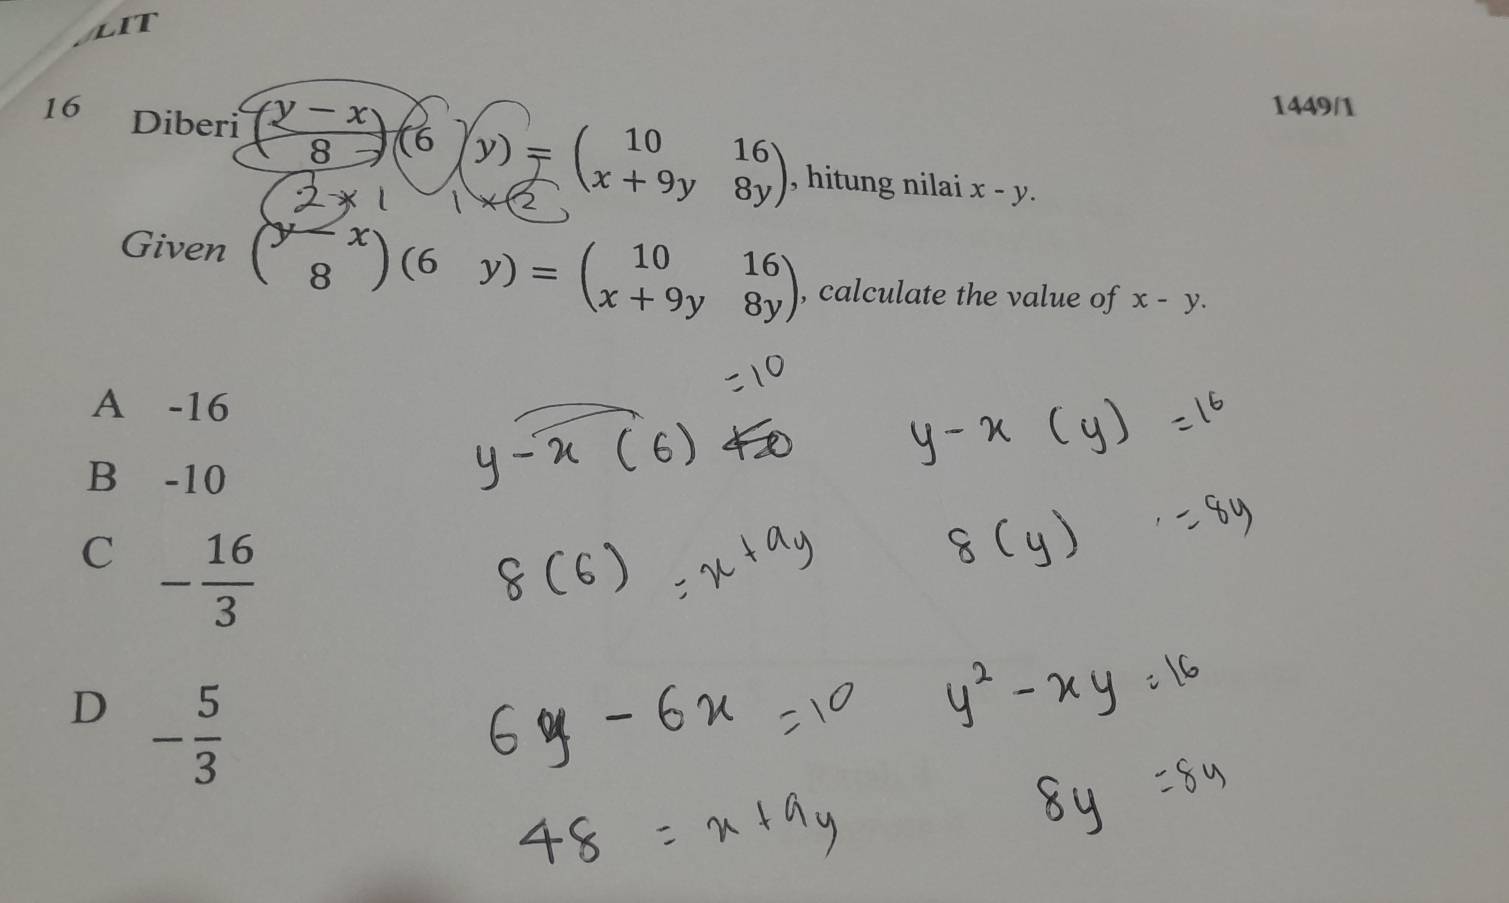 LIT
1449/1
16 Diberi (y − x / 8) (6 y) = (10 16 / x + 9y 8y), hitung nilai x - y.
2 × 1 1 × 2
Given (y − x / 8) (6 y) = (10 16 / x + 9y 8y), calculate the value of x - y.
A -16
B -10
C − 16/3
D − 5/3
y − x (6) = 10
y − x (y) = 16
8 (6) = x + 9y
8 (y) = 8y
6y − 6x = 10
y² − xy = 16
48 = x + 9y
8y = 8y